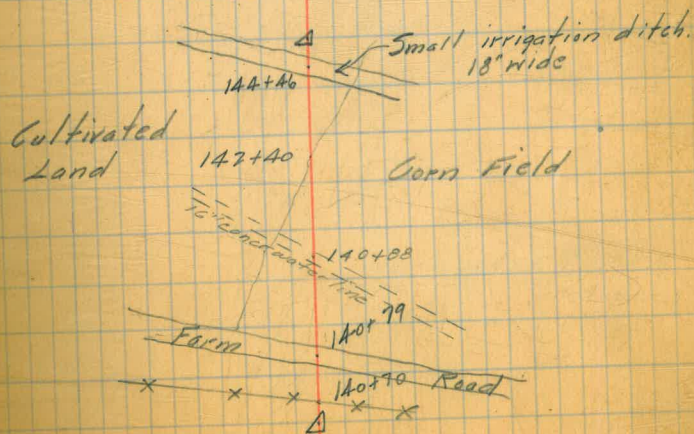 Small irrigation ditch.
18" wide
144+46
Cultivated
Land
142+40
Corn Field
conc water line
140+88
140+79
Farm Road
140+70